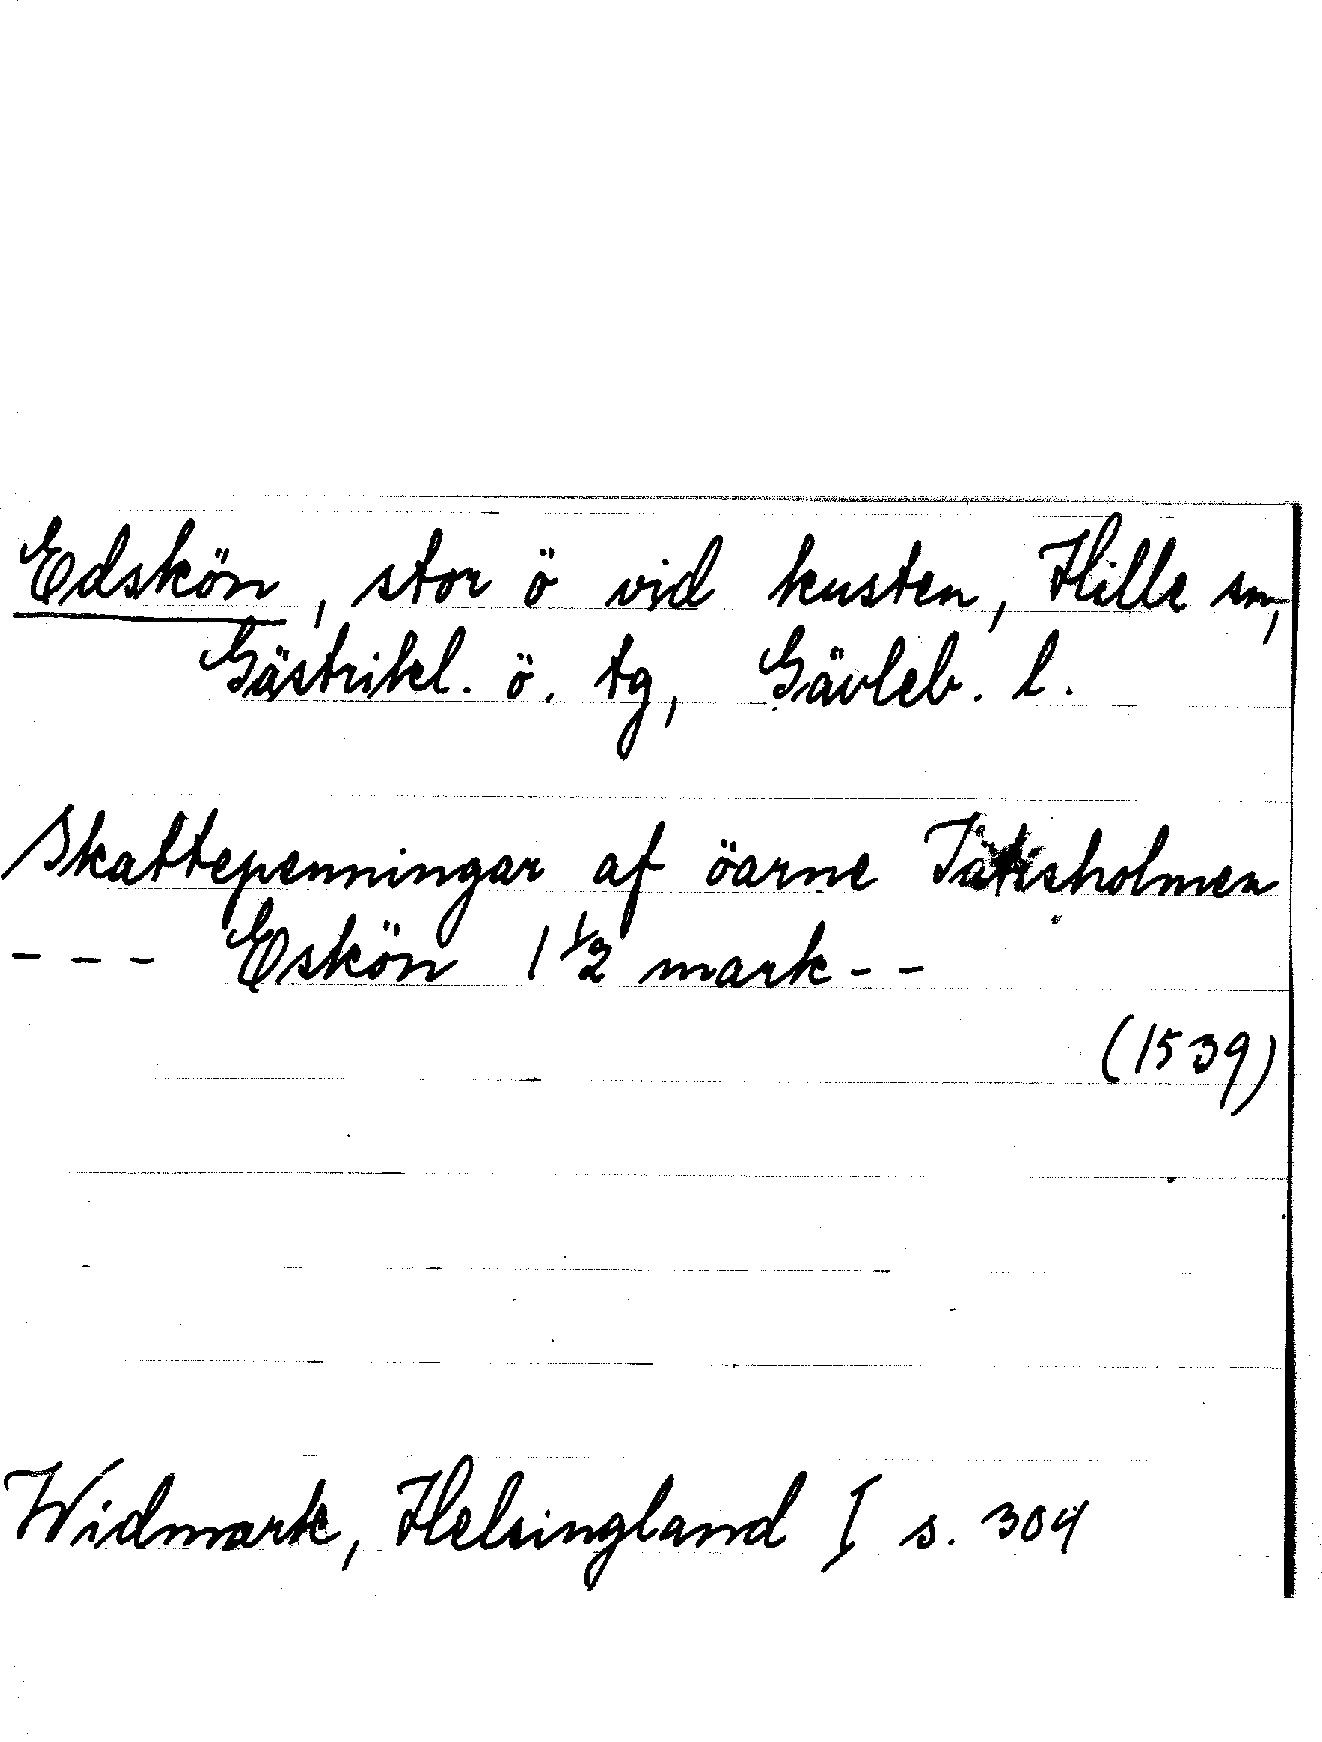 Edskön, stor ö vid kusten, Hille sn,
Gästrikl. ö. tg, Gävleb. l.
Skattepenningar af öarne
- - - Eskön 1 1/2 mark - -
(1539)
Widmark, Helsingland I s. 304